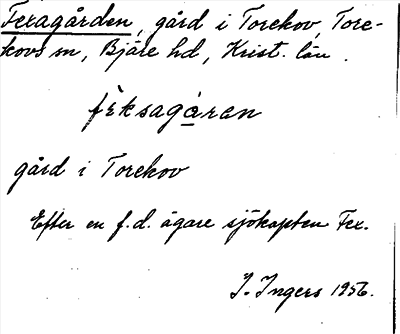 Fexagården, gård i Torekov, Tore-
kovs sn, Bjäre hd, Krist. län.
fèksagá̱ran
gård i Torekov
Efter en f.d. ägare sjökapten Fex.
I. Ingers 1956.